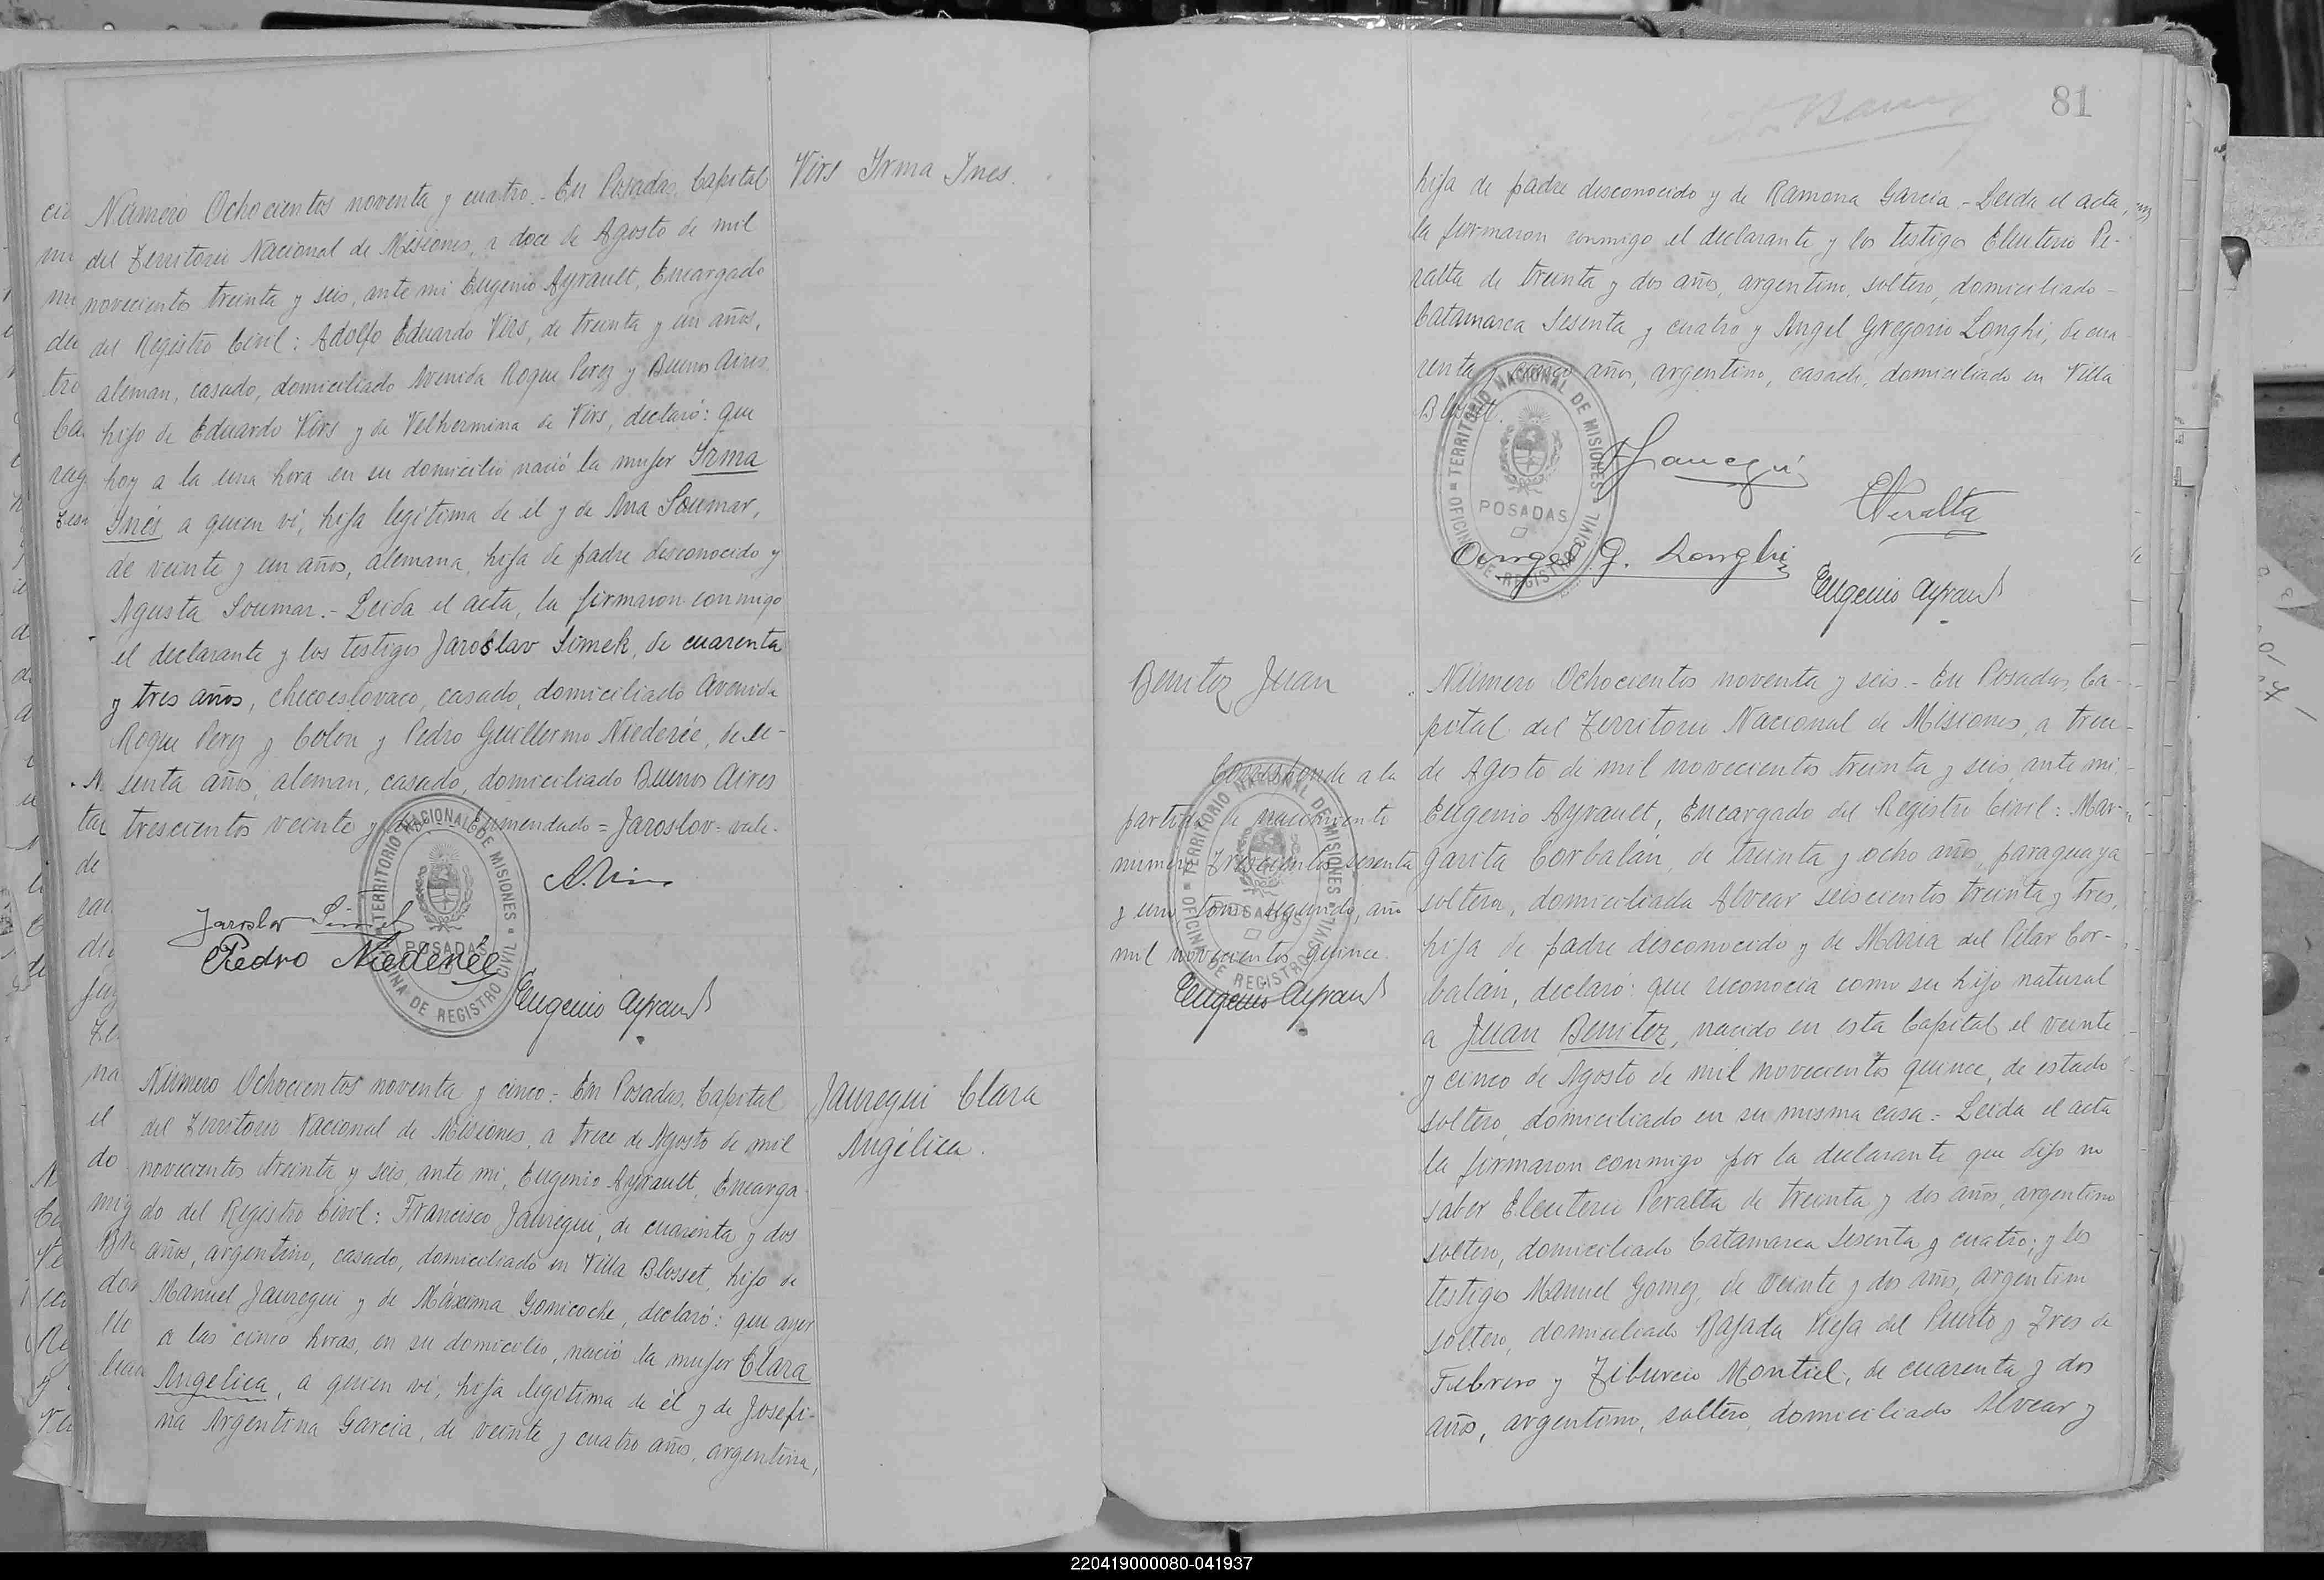 Número Ochocientos noventa y cuatro.- En Posadas, Capital
del Territorio Nacional de Misiones, a doce de Agosto de mil
novecientos treinta y seis, ante mi Eugenio Ayrault, Encargado
del Registro Civil: Adolfo Eduardo Virs, de treinta y un años,
aleman, casado, domiciliado Avenida Roque Perez y Buenos Aires
hijo de Eduardo Virs y de Velhermina de Virs, declaró: que
hoy a la una hora en su domicilio nació la mujer Irma
Inés, a quien vi, hija legítima de él y de Ana Soumar,
de veinte y un años, alemana, hija de padre desconocido y
Agusta Soumar.- Leida el acta, la firmaron conmigo
el declarante y los testigos Jaroslav Simek, de cuarenta
y tres años, checoeslovaco, casado, domiciliado Avenida
Roque Perez y Colon y Pedro Guillermo Niederée, de se-
senta años, aleman, casado, domiciliado Buenos Aires
trescientos veinte y Enmendado = Jaroslov = vale.
Virs Irma Ines.
TERRITORIO NACIONAL DE MISIONES
POSADAS
OFICINA DE REGISTRO CIVIL
Jaroslav Simek
Pedro Niederée
Eugenio Ayrault
Número Ochocientos noventa y cinco.- En Posadas, Capital
del Territorio Nacional de Misiones, a trece de Agosto de mil
novecientos treinta y seis, ante mi, Eugenio Ayrault, Encarga
do del Registro Civil: Francisco Jauregui, de cuarenta y dos
años, argentino, casado, domiciliado en Villa Blosset, hijo de
Manuel Jauregui y de Máxima Gomicoche, declaró: que ayer
a las cinco horas, en su domicilio, nació la mujer Clara
Angelica, a quien vi, hija legitima de él y de Josefi-
na Argentina Garcia, de veinte y cuatro años, argentina,
Jauregui Clara
Angélica.
81
hija de padre desconocido y de Ramona Garcia.- Leida el acta,
la firmaron conmigo el declarante y los testigos Eleuterio Pe-
ralta de treinta y dos años, argentino, soltero, domiciliado
Catamarca Sesenta y cuatro y Angel Gregorio Longhi, de cua
renta y cinco años, argentino, casado, domiciliado en Villa
Blosset.
TERRITORIO NACIONAL DE MISIONES
POSADAS
OFICINA DE REGISTRO CIVIL
FJauregui
EPeralta
Angel G. Longhi
Eugenio Ayrault
Benitez Juan
Corresponde a la
partida de nacimiento
número Trescientos sesenta
y uno, tomo segundo, año
mil novecientos quince.
TERRITORIO NACIONAL DE MISIONES
POSADAS
OFICINA DE REGISTRO CIVIL
Eugenio Ayrault
Número Ochocientos noventa y seis.- En Posadas, Ca-
pital del Territorio Nacional de Misiones, a trece
de Agosto de mil novecientos treinta y seis, ante mi
Eugenio Ayrault, Encargado del Registro Civil: Mar-
garita Corbalán, de treinta y ocho años, paraguaya
soltera, domiciliada Alvear seiscientos treinta y tres,
hija de padre desconocido y de Maria del Pilar Cor-
balán, declaró: que reconocia como su hijo natural
a Juan Benitez, nacido en esta Capital el veinte
y cinco de Agosto de mil novecientos quince, de estado
soltero, domiciliado en su misma casa.- Leida el acta
la firmaron conmigo por la declarante que dijo no
saber Eleuterio Peralta de treinta y dos años, argentino
soltero, domiciliado Catamarca Sesenta y cuatro; y los
testigos Manuel Gomez, de veinte y dos años, argentino
soltero, domiciliado Bajada Vieja del Puerto y Tres de
Febrero y Tiburcio Montiel, de cuarenta y dos
años, argentino, soltero, domiciliado Alvear y
220419000080-041937